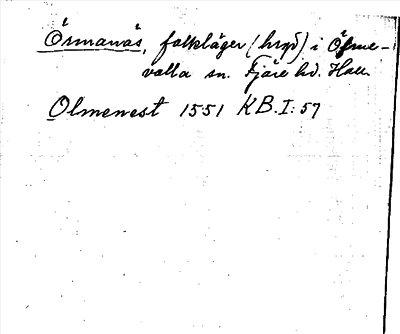 Örmanäs, folkläger (hrgd) i Ölme-
valla sn. Fjäre hd. Hall.
Olmenest 1551 KB.I:57